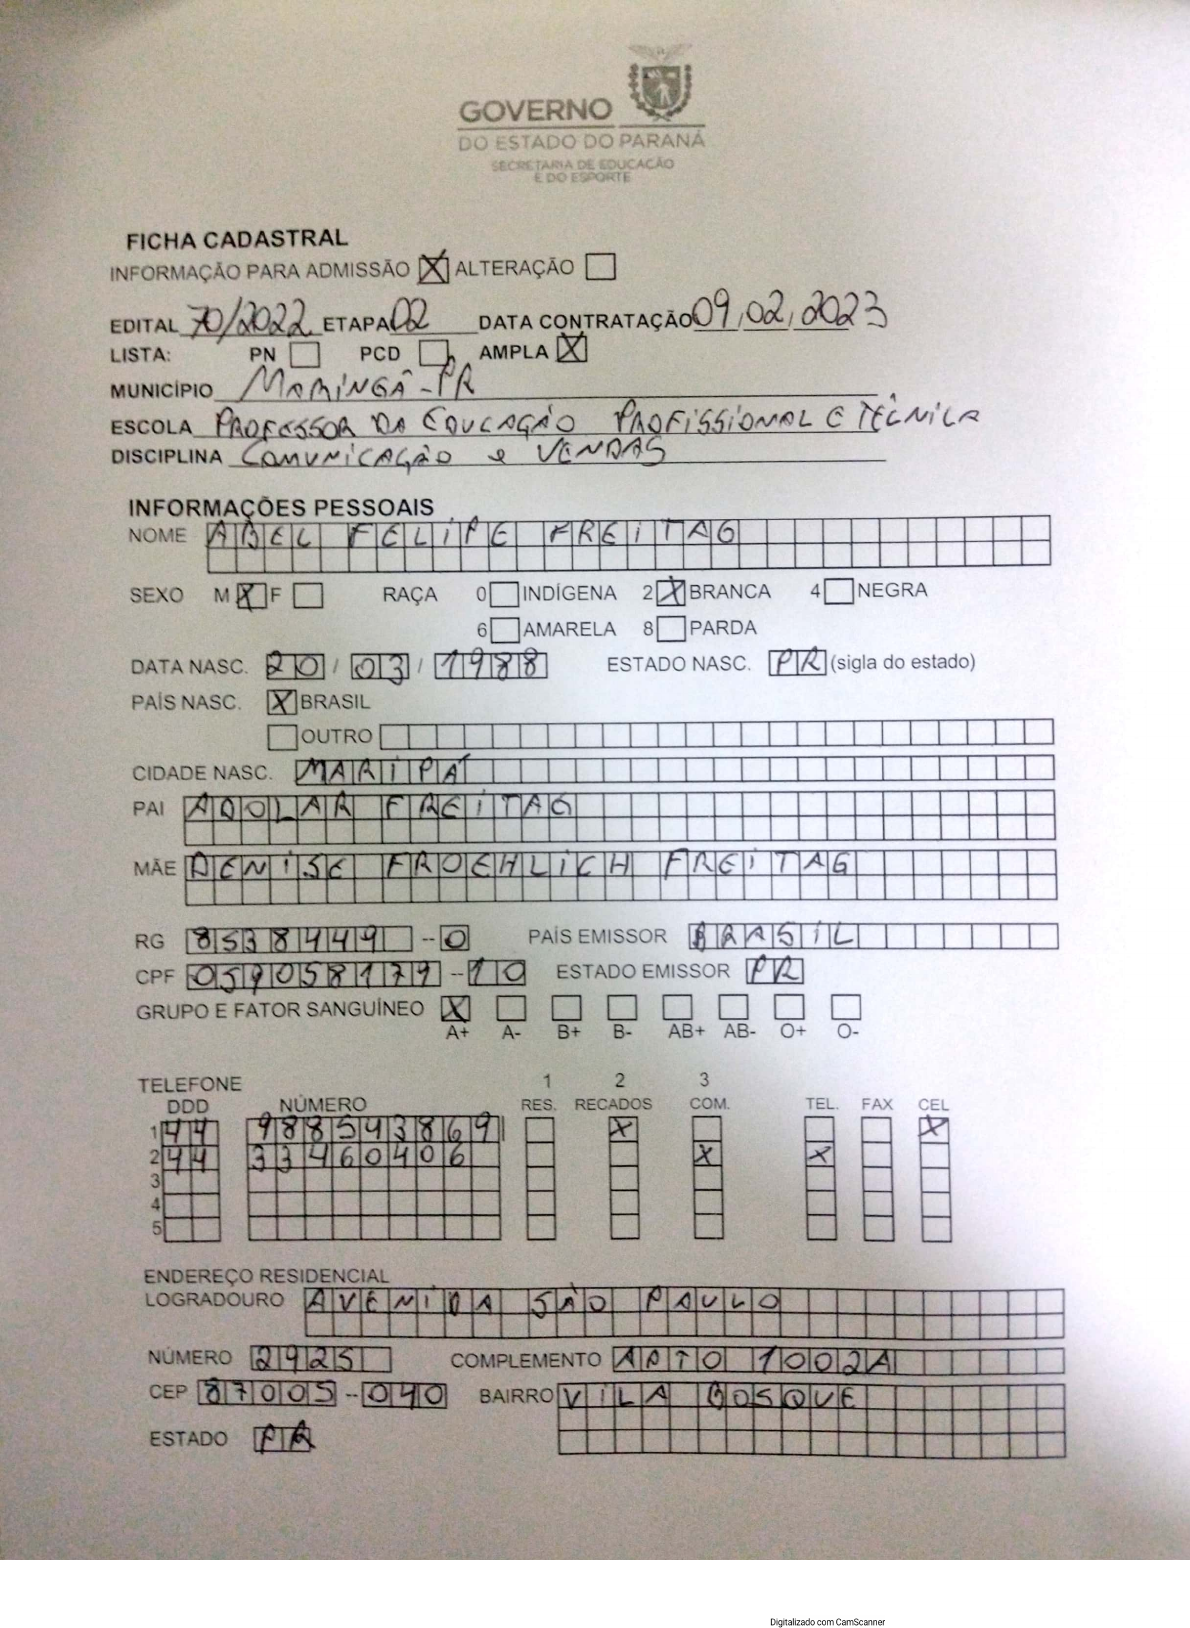 GOVERNO
DO ESTADO DO PARANÁ
SECRETARIA DE EDUCAÇÃO
E DO ESPORTE
FICHA CADASTRAL
INFORMAÇÃO PARA ADMISSÃO X ALTERAÇÃO
EDITAL 70/2022 ETAPA 02 DATA CONTRATAÇÃO 09,02,2023
LISTA: PN PCD AMPLA X
MUNICÍPIO MARINGÁ-PR
ESCOLA PROFESSOR DA EDUCAÇÃO PROFISSIONAL E TÉCNICA
DISCIPLINA COMUNICAÇÃO e VENDAS
INFORMAÇÕES PESSOAIS
NOME ABEL FELIPE FREITAG
SEXO M X F RAÇA 0 INDÍGENA 2 X BRANCA 4 NEGRA
6 AMARELA 8 PARDA
DATA NASC. 20 / 03 / 1988 ESTADO NASC. PR (sigla do estado)
PAÍS NASC. X BRASIL
OUTRO
CIDADE NASC. MARIPÁ
PAI ADOLAR FREITAG
MÃE DENISE FROEHLICH FREITAG
RG 8538449 -- 0 PAÍS EMISSOR BRASIL
CPF 059058179 -- 10 ESTADO EMISSOR PR
GRUPO E FATOR SANGUÍNEO X
A+ A- B+ B- AB+ AB- O+ O-
TELEFONE 1 2 3
DDD NÚMERO RES. RECADOS COM. TEL. FAX CEL
1 44 988543869 X X
2 44 33460406 X X
3
4
5
ENDEREÇO RESIDENCIAL
LOGRADOURO AVENIDA SÃO PAULO
NÚMERO 2925 COMPLEMENTO APTO 1002A
CEP 87005 -- 040 BAIRRO VILA BOSQUE
ESTADO PR
Digitalizado com CamScanner